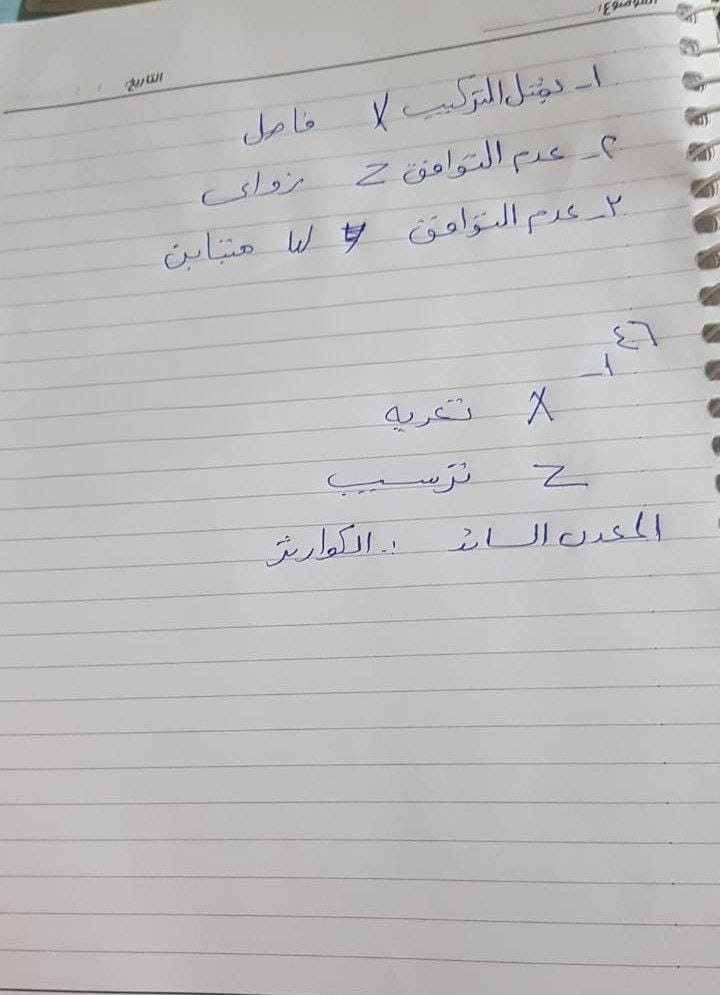 الموضوع:
التاريخ: / /
١- يمثل التركيب X فاصل
٢- عدم التوافق Z زواى
٢- عدم التوافق W متباين
٤٦
١-
X تعريه
Z ترسيب
المعدن السائد :. الكوارتز